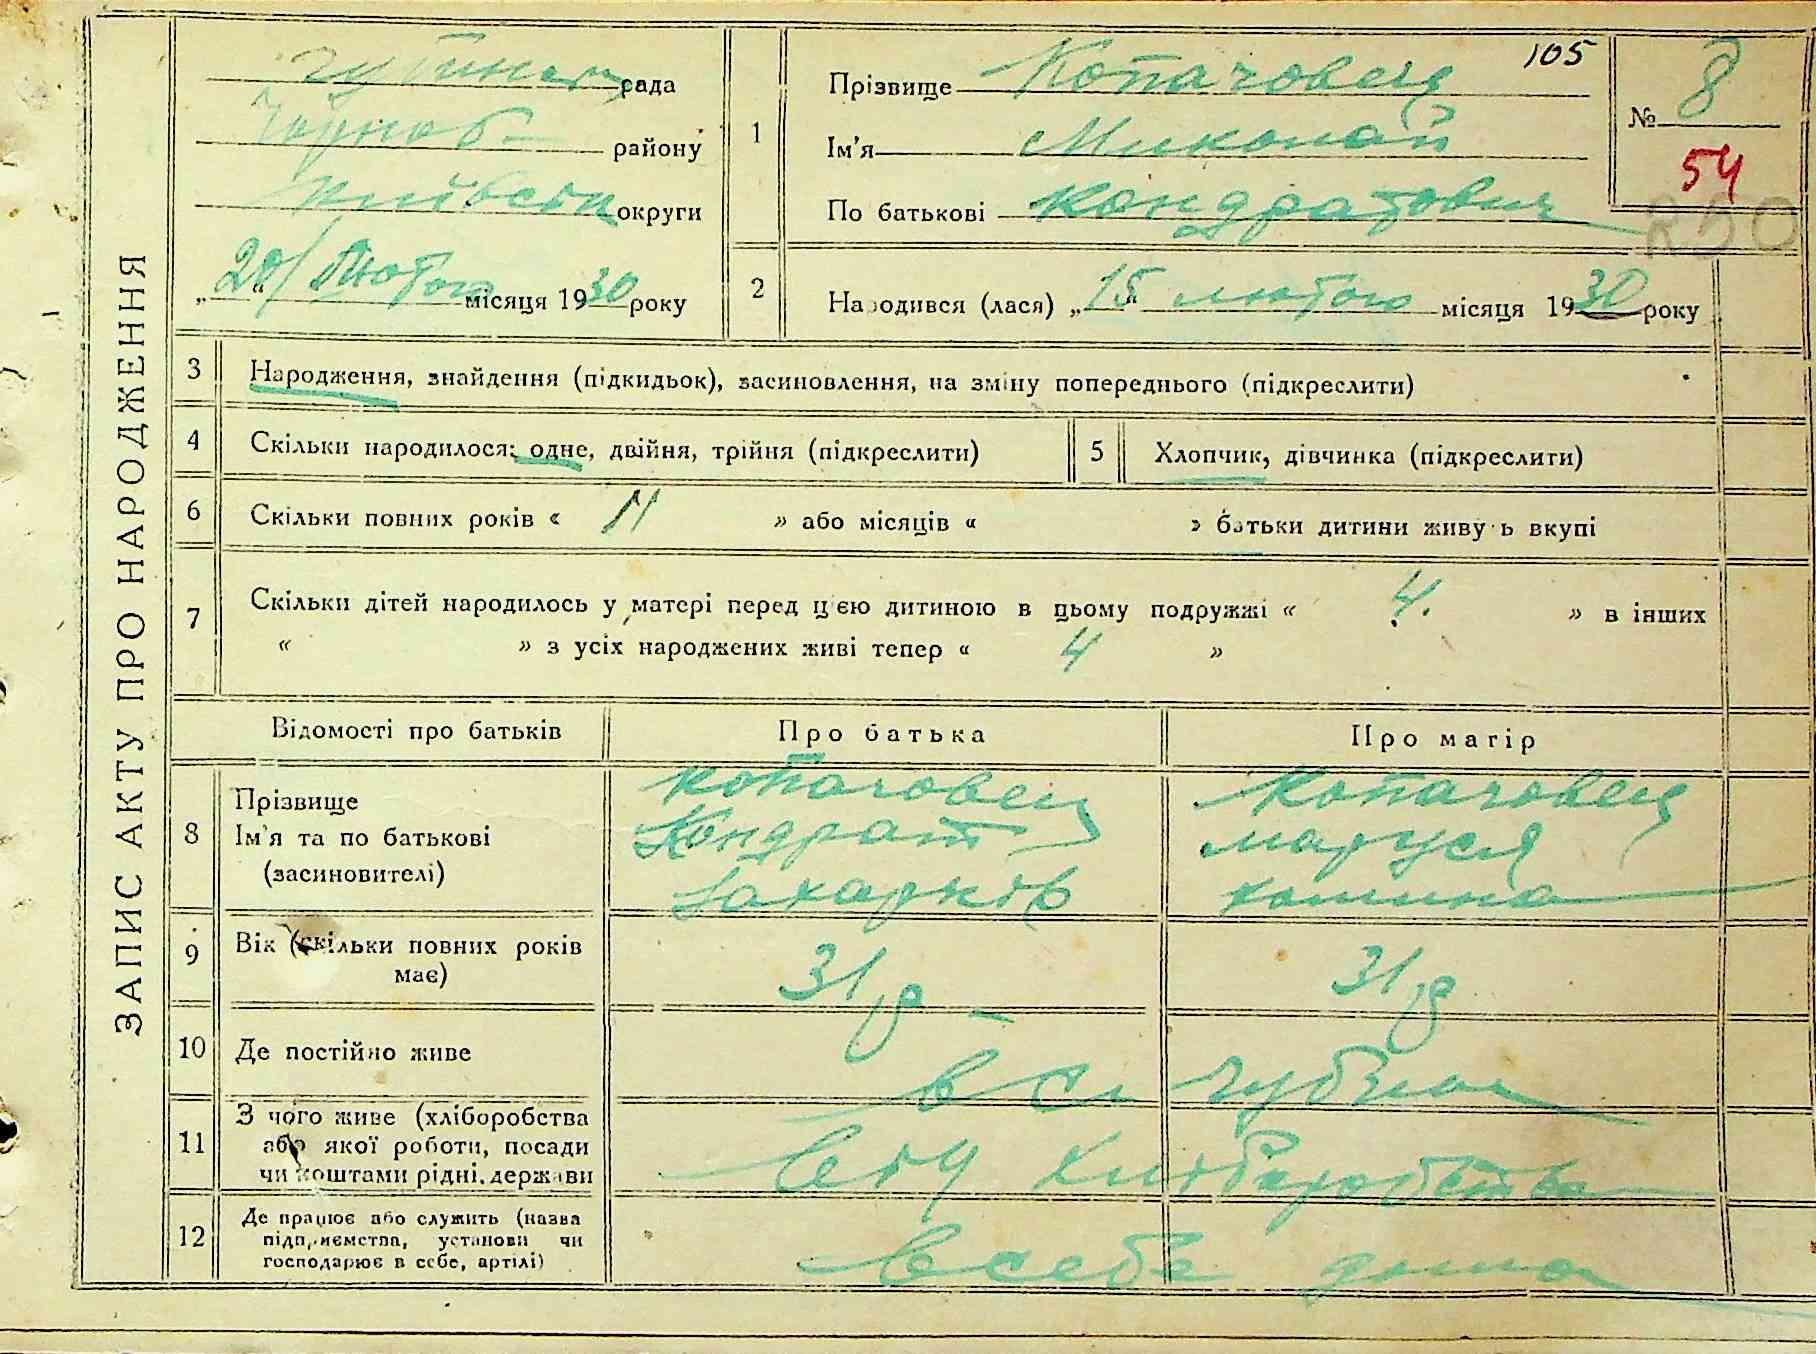 ЗАПИС АКТУ ПРО НАРОДЖЕННЯ
рада
Чорноб району
Київськ округи
„20“ Лютого місяця 1930 року
105
1
Прізвище Копачовец
Ім'я Миколай
По батькові Кондратович
№ 8
54
250
2
Народився (лася) „15“ лютого місяця 1930 року
3 Народження, знайдення (підкидьок), засиновлення, на зміну попереднього (підкреслити)
4 Скільки народилося: одне, двійня, трійня (підкреслити) 5 Хлопчик, дівчинка (підкреслити)
6 Скільки повних років « 11 » або місяців « » батьки дитини живуть вкупі
7 Скільки дітей народилось у матері перед цією дитиною в цьому подружжі « 4. » в інших
« » з усіх народжених живі тепер « 4 »
Відомості про батьків Про батька Про матір
8 Прізвище
Ім'я та по батькові
(засиновителі)
Копачовец
Кондрат
Захарків
Копачовец
маруся
9 Вік (скільки повних років
має)
31 р
31 р
10 Де постійно живе
в с. Губин
11 З чого живе (хліборобства
або якої роботи, посади
чи коштами рідні, держави
від хліборобства
12 Де працює або служить (назва
підприємства, установи чи
господарює в себе, артілі)
в себе дома